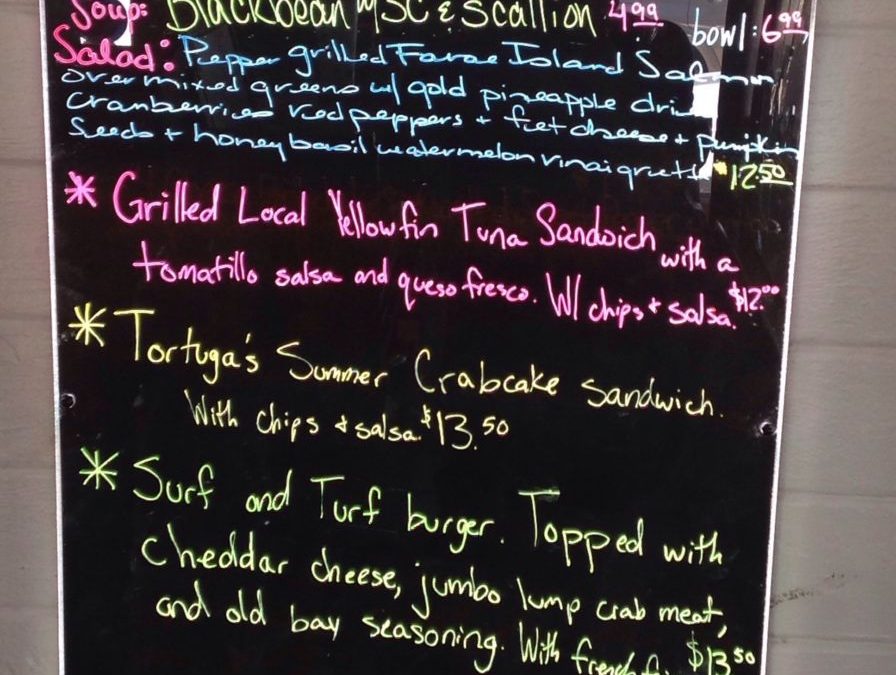 Soup: Blackbean MSC & Scallion 4.99 bowl: 6.99
Salad: Pepper grilled Faroe Island Salmon
over mixed greens w/ gold pineapple dried
cranberries red peppers + fet cheese + pumpkin
seeds + honey basil watermelon vinaigrette $12.50
* Grilled Local Yellowfin Tuna Sandwich with a
tomatillo salsa and queso fresco. W/ chips + salsa. $12.00
* Tortuga's Summer Crabcake sandwich.
With chips & salsa. $13.50
* Surf and Turf burger. Topped with
cheddar cheese, jumbo lump crab meat,
and old bay seasoning. With french $13.50